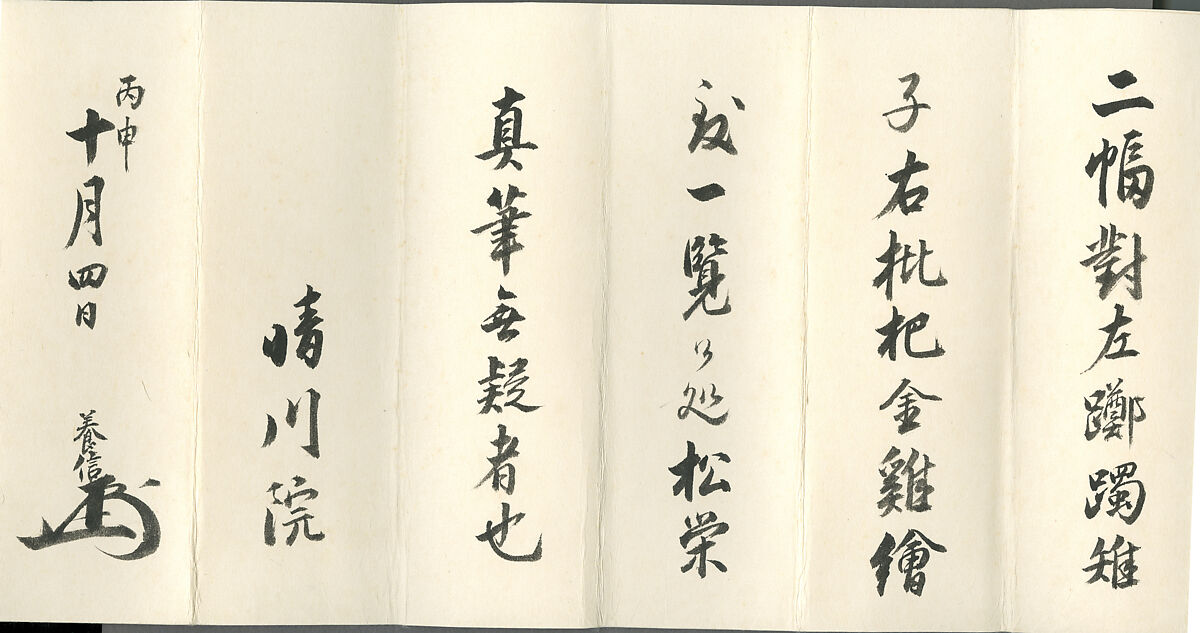 二幅對左躑躅雉
子右枇杷金雞繪
致一覧候処松栄
真筆無疑者也
晴川院
丙申
十月四日
養信